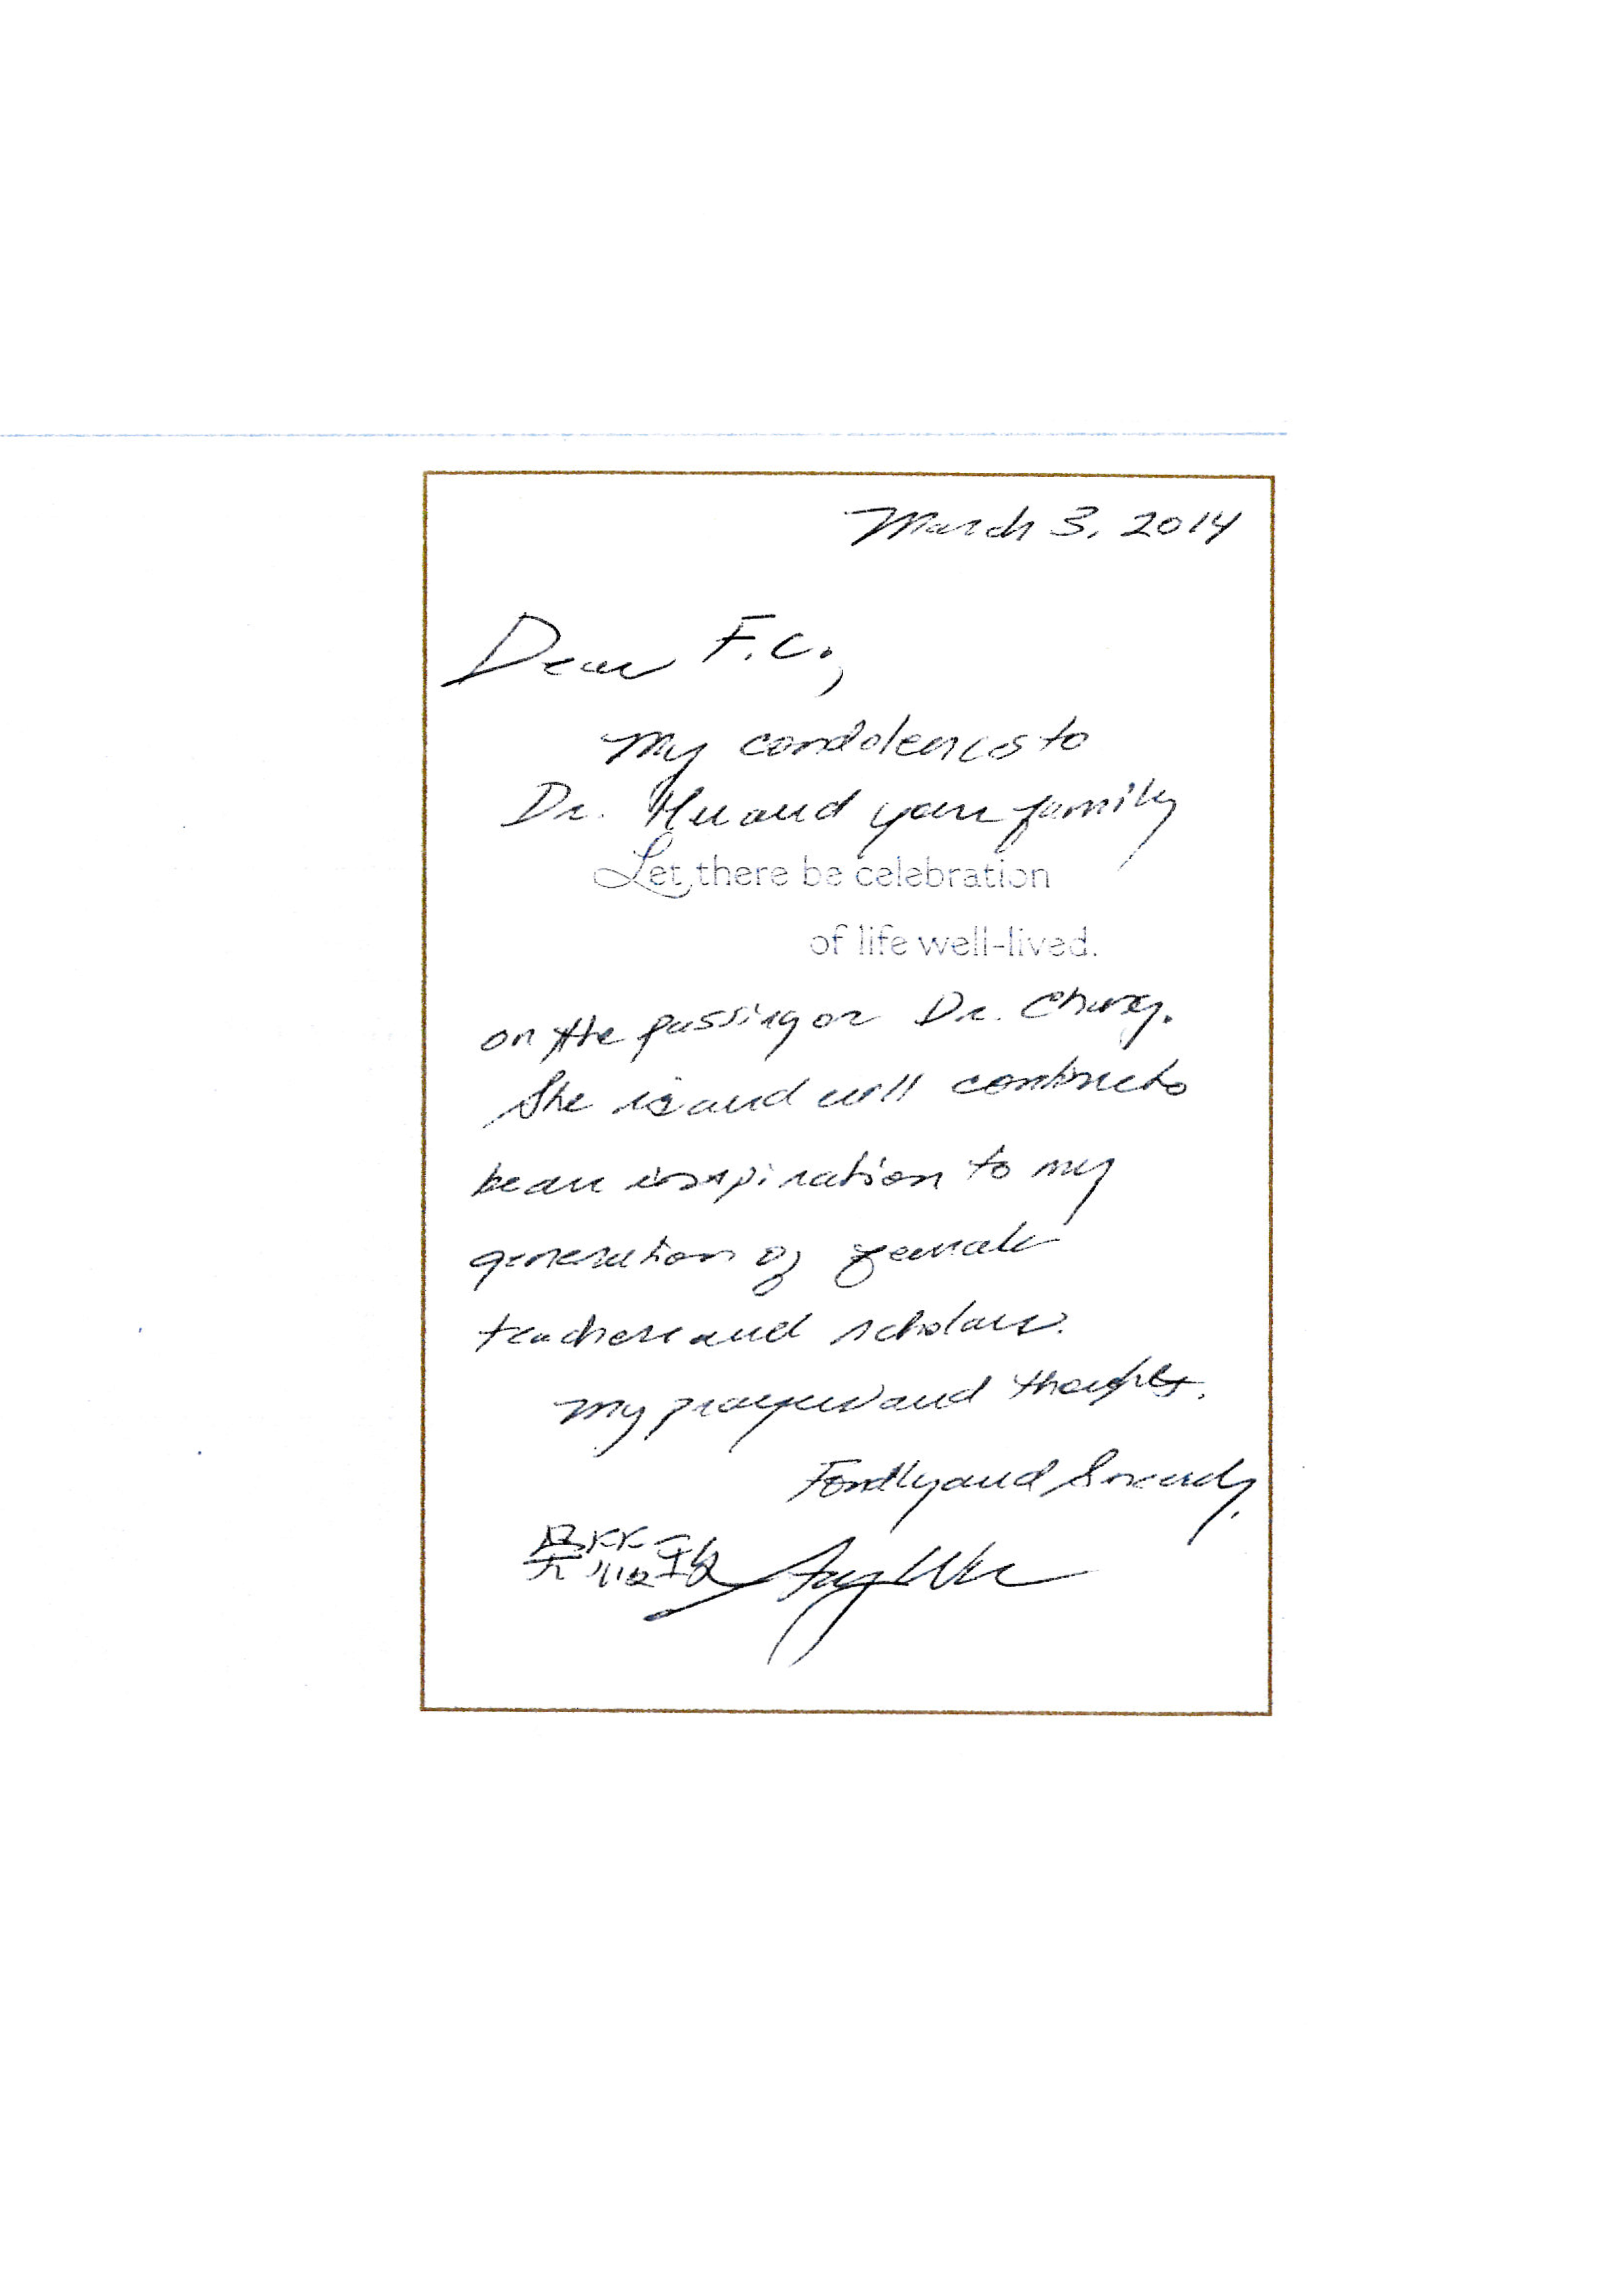 March 3, 2014
Dear F.C.,
My condolences to
Dr. Hu and your family
Let there be celebration
of life well-lived.
on the passing of Dr. Chung.
She is and will continue to
be an inspiration to my
generation of female
teachers and scholars.
My prayers and thoughts.
Fondly and Sincerely,
吳